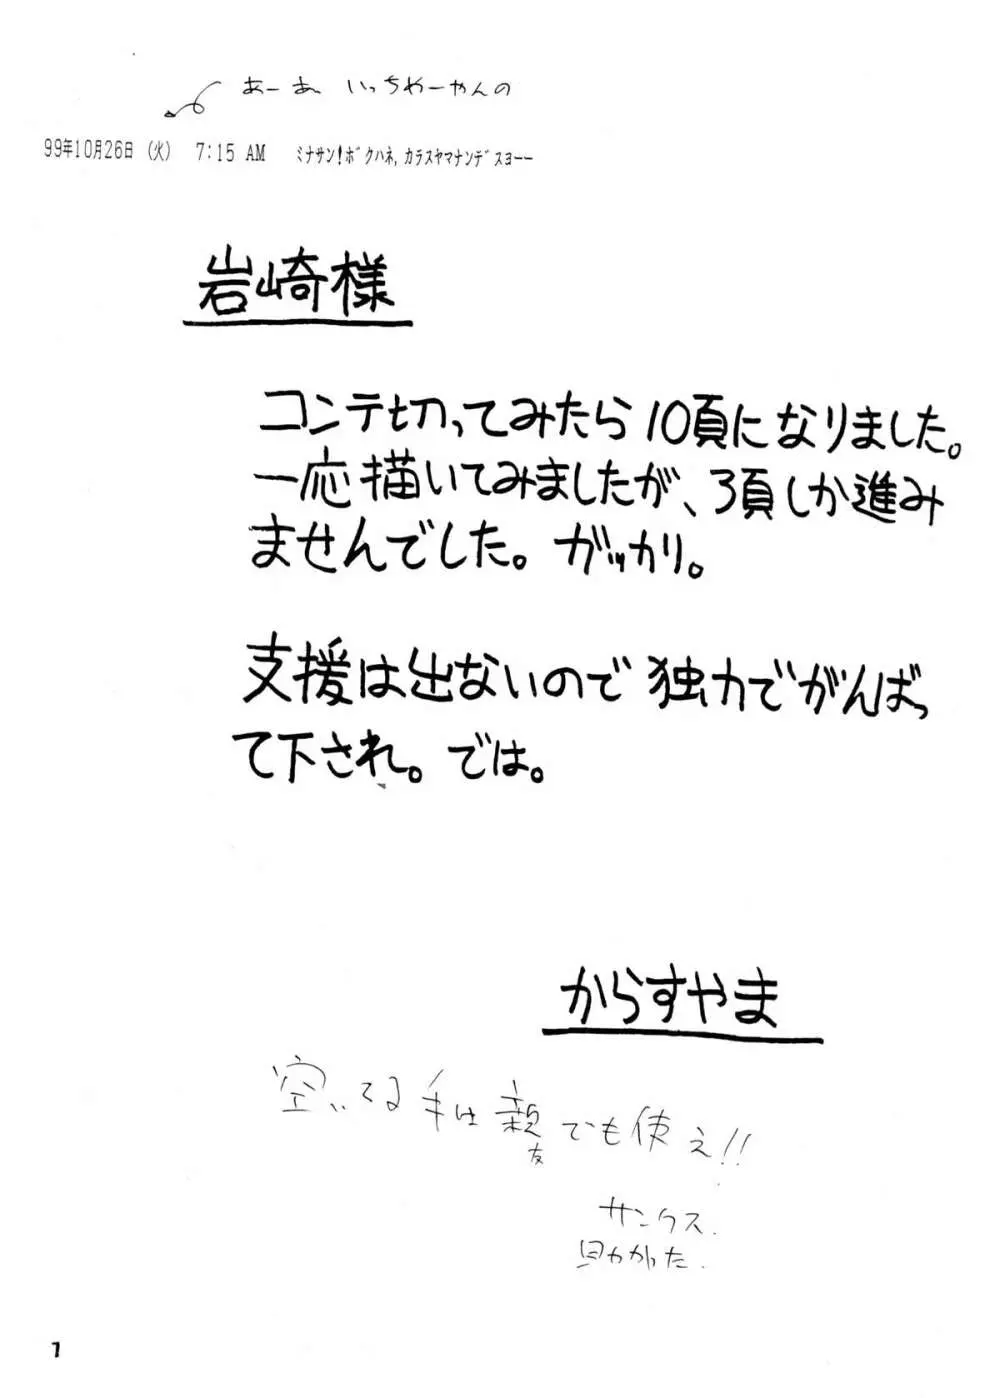 あーあ いっちゃーやんの
99年10月26日 (火) 7:15 AM ﾐﾅｻﾝ!ﾎﾞｸﾊﾈ,ｶﾗｽﾔﾏﾅﾝﾃﾞｽﾖｰｰ
岩崎様
コンテ切ってみたら10頁になりました。
一応描いてみましたが、3頁しか進み
ませんでした。ガッカリ。
支援は出ないので独力でがんばっ
て下され。では。
からすやま
空いてる手は親友でも使え!!
サンクス.
助かった.
7